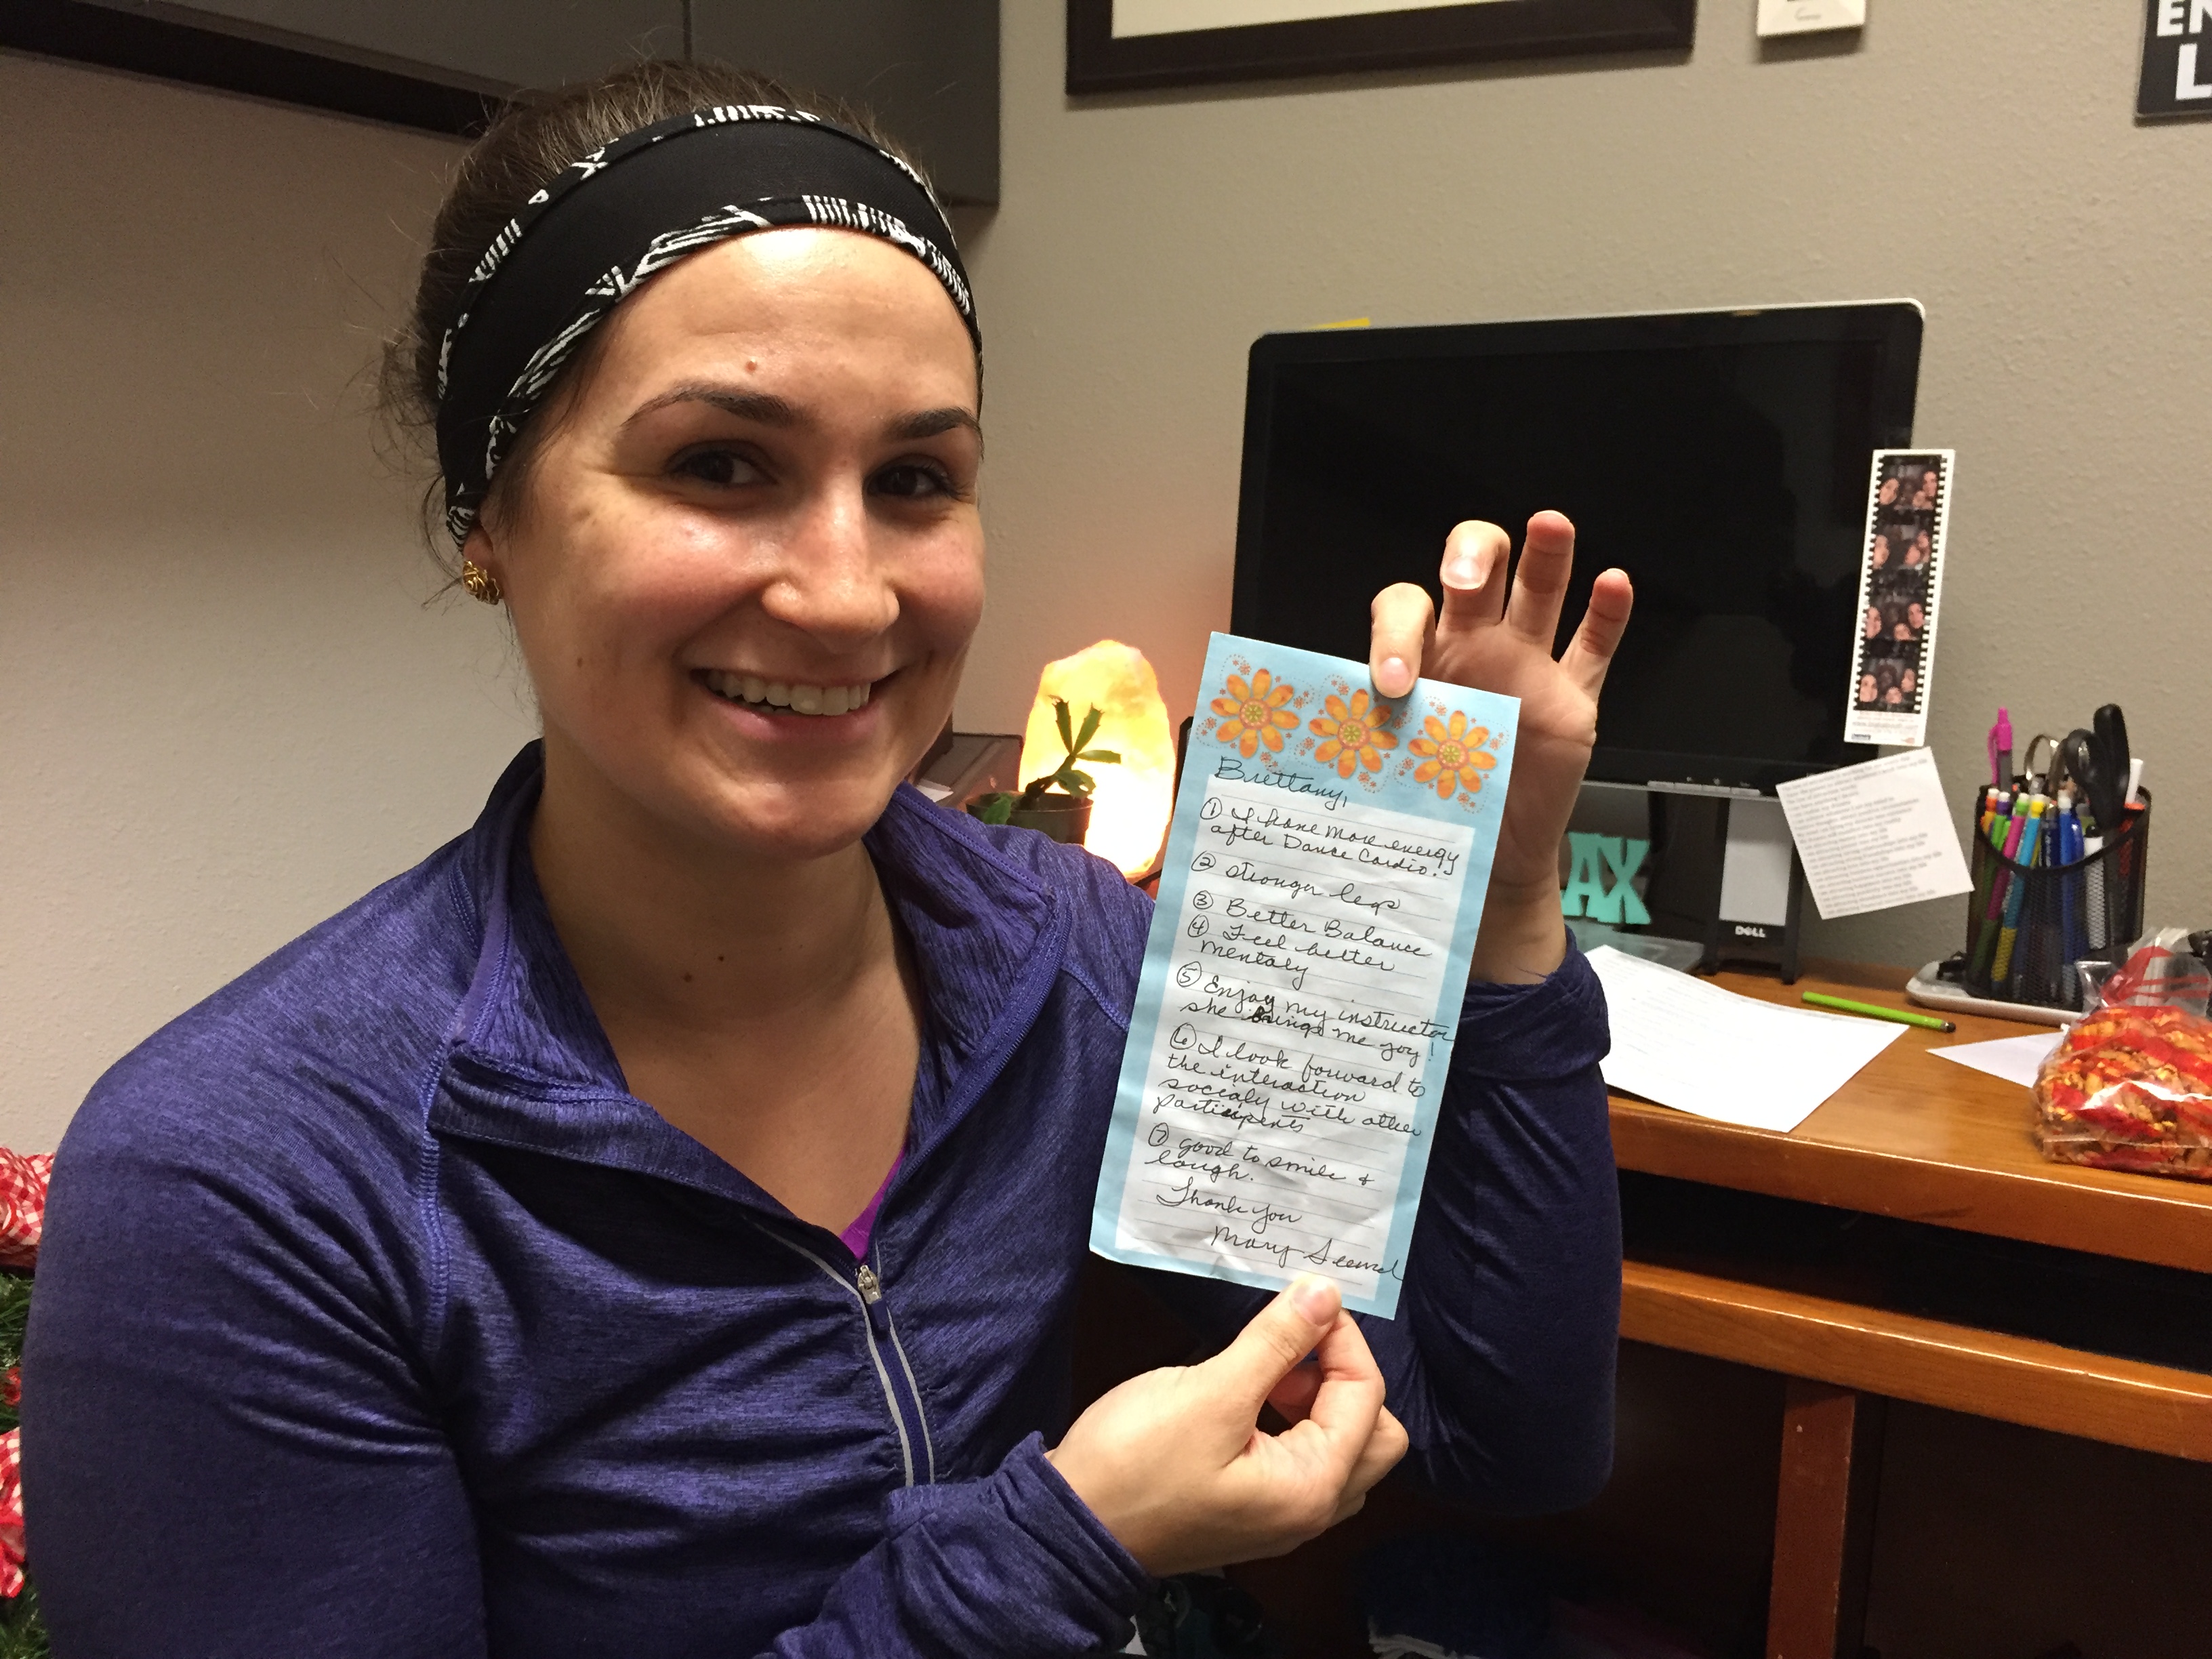 Brettany,
① I have more energy
after Dance Cardio!
② stronger legs
③ Better Balance
④ Feel better
mentaly
⑤ Enjoy my instructor
she brings me joy!
⑥ I look forward to
the interaction
socialy with other
participents
⑦ good to smile &
laugh.
Thank you
Mary
EN
L
AX
DELL